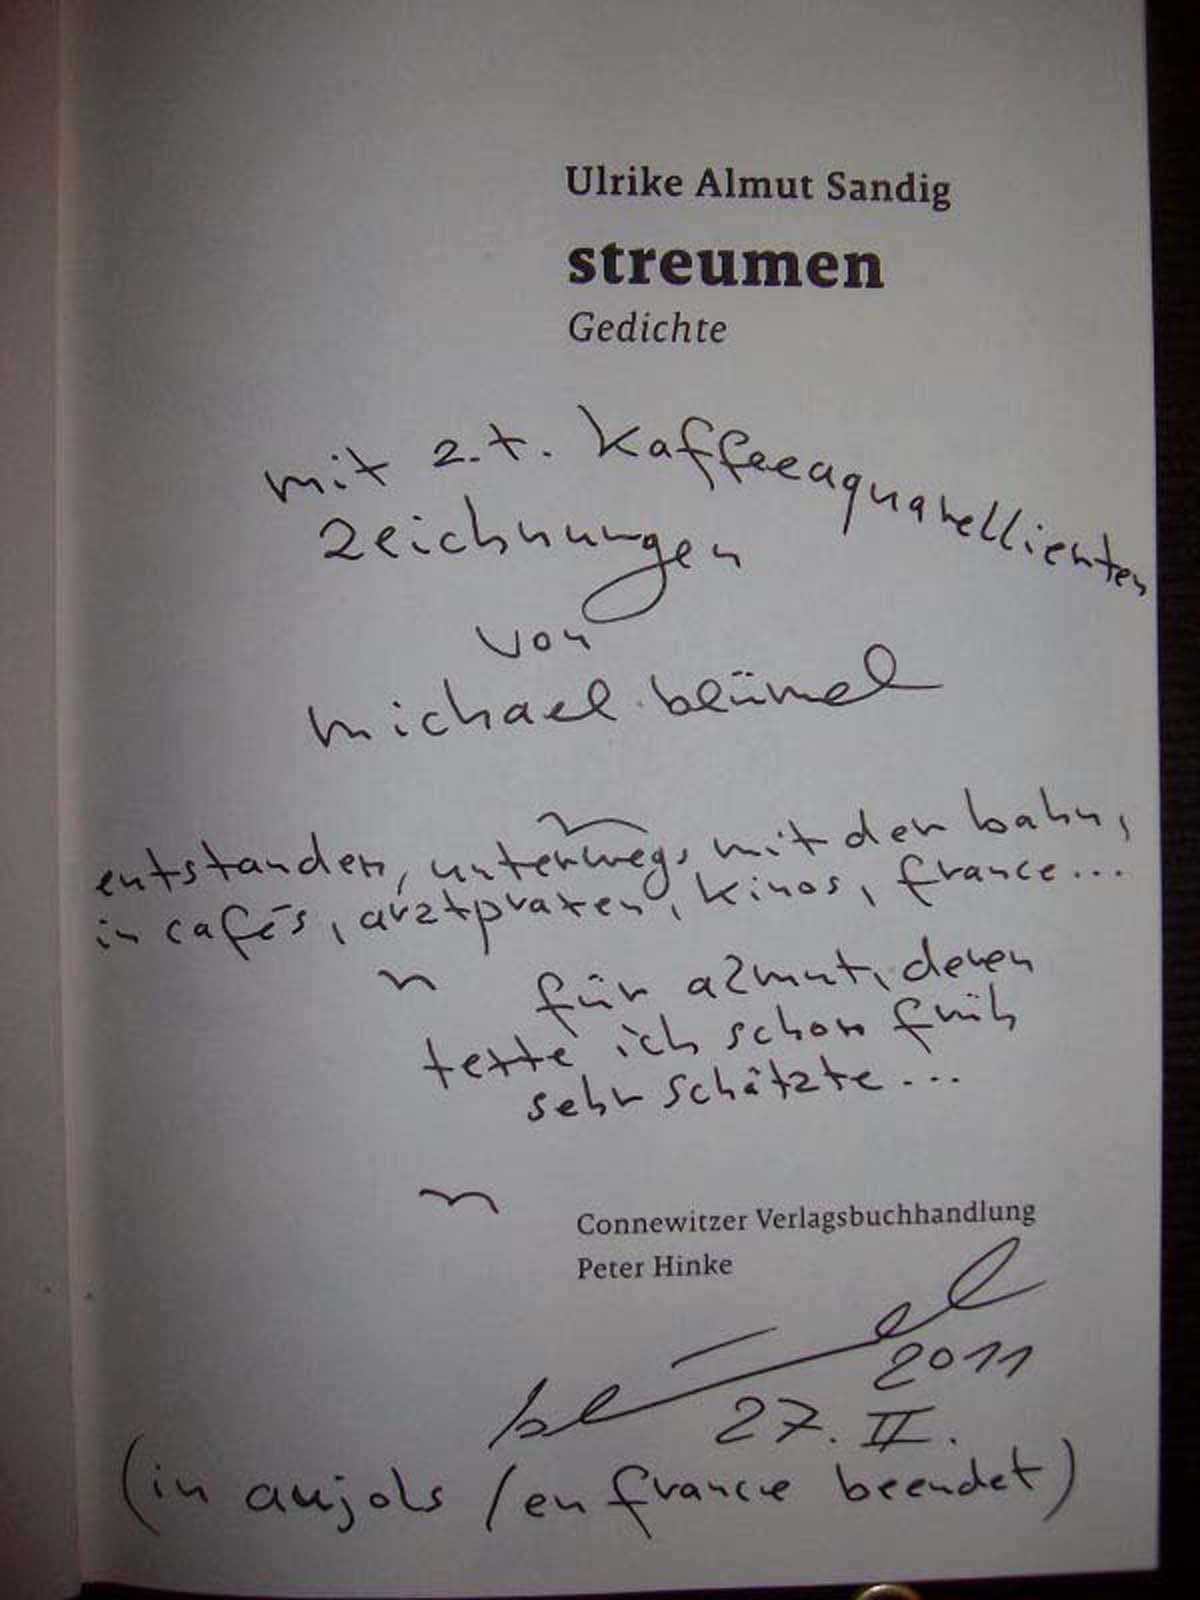 Ulrike Almut Sandig
streumen
Gedichte
mit z.t. kaffeeaquarellierten
zeichnungen
von
michael blümel
entstanden, unterwegs mit der bahn,
in cafés, arztpraxen, kinos, france...
für almut, deren
texte ich schon früh
sehr schätzte...
Connewitzer Verlagsbuchhandlung
Peter Hinke
2011
27. II.
(in aujols / en france beendet)